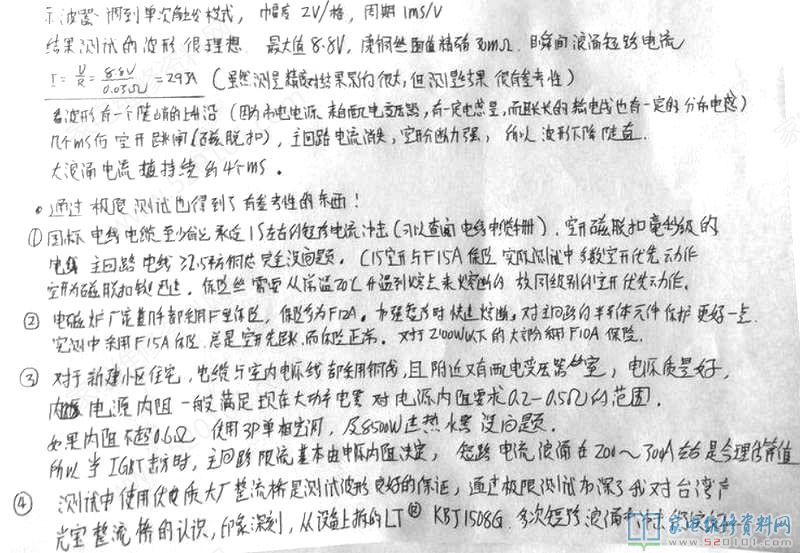 示波器 调到单次触发模式, 幅度 2V/格, 周期 1ms/V
结果测试的波形 很理想. 最大值 8.8V, 康铜丝阻值精确 30mΩ. 瞬间浪涌短路电流
I = U/R = 8.8V/0.03Ω = 293A (虽然测量精度对结果影响很大, 但测量结果 很有参考性)
看波形有一个陡峭的上升沿 (因为市电电源 来自配电变压器, 有一定电感量, 而且长长的输电线也有一定的分布电感)
几个ms后 空开跳闸(磁脱扣), 主回路电流消失, 空开分断力强, 所以 波形下降陡直.
大浪涌电流 持续约4个ms.
• 通过 极度 测试也得到了有参考性的东西!
① 国标 电线电缆至少能承受 1S左右的短路电流冲击 (可以查询 电线电缆手册). 空开磁脱扣毫秒级的
主回路电线 2.5平方铜芯完全没问题. C15空开与F15A保险 实际测试中 多数空开优先动作
空开为磁脱扣 迅速. 保险丝 需要从常温20℃升温到熔点来熔断的 故同级别的空开优先动作.
② 电磁炉厂家基本都采用F型保险, 保险为F12A. 加强短路时快速熔断. 对主回路的半导体元件保护 更好一点.
实测中采用F15A保险 总是空开先跳, 而保险正常. 对于2100W以下的大部分采用F10A保险.
③ 对于新建小区住宅, 电缆与室内电源线都采用铜线, 且附近又有配电变压器室, 电源质量好,
电源内阻 一般满足现在大功率电器 对电源内阻要求 0.2~0.5Ω的范围.
如果内阻不超0.6Ω 使用3P单相空调, 及8500W速热水器 没问题.
所以当IGBT击穿时, 主回路限流基本由电源内阻决定, 短路电流浪涌在200~300A左右是合理估算值
④ 测试中使用优质大厂整流桥是测试波形良好的保证, 通过极限测试加深了我对台湾产
光宝整流桥的认识, 印象深刻, 从设备上拆的LT KBJ1508G. 多次短路浪涌冲击
家电维修资料网
www.520101.com